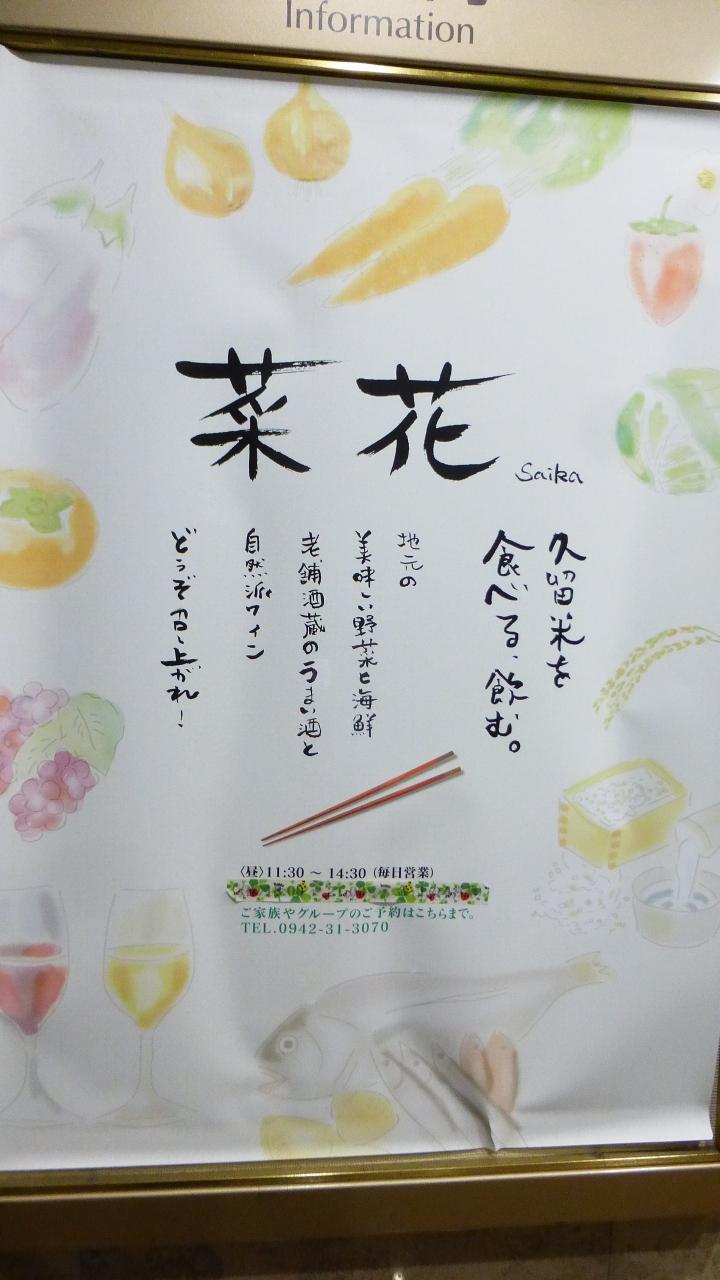 Information
菜花
Saika
久留米を
食べる、飲む。
地元の
美味しい野菜と海鮮
老舗酒蔵のうまい酒と
自然派ワイン
どうぞ召し上がれ！
〈昼〉11:30 ～ 14:30（毎日営業）
ご家族やグループのご予約はこちらまで。
TEL.0942-31-3070